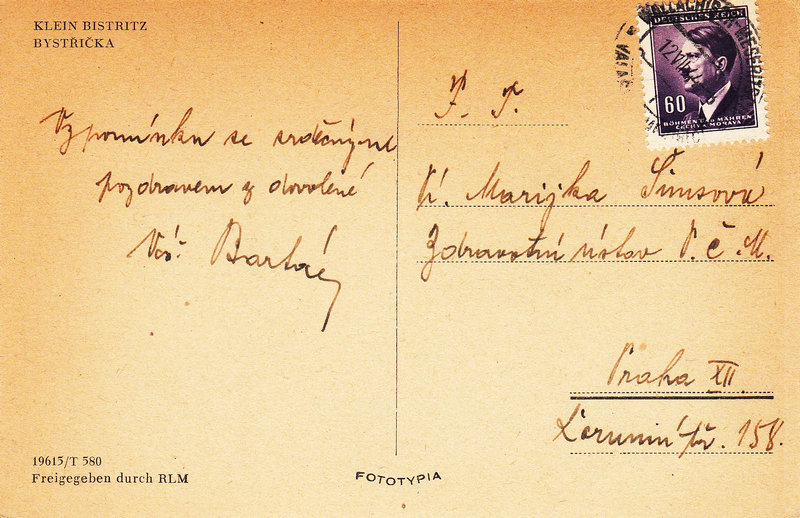 KLEIN BISTRITZ
BYSTŘIČKA
Vzpomínku se srdečným
pozdravem z dovolené
Váš Barták
19615/T 580
Freigegeben durch RLM
FOTOTYPIA
DEUTSCHES REICH
60
BÖHMEN U. MÄHREN
ČECHY A MORAVA
P. T.
Marijka Šimsová
Zdravotní ústav P. Č. M.
Praha XII
Korunní tř. 158.